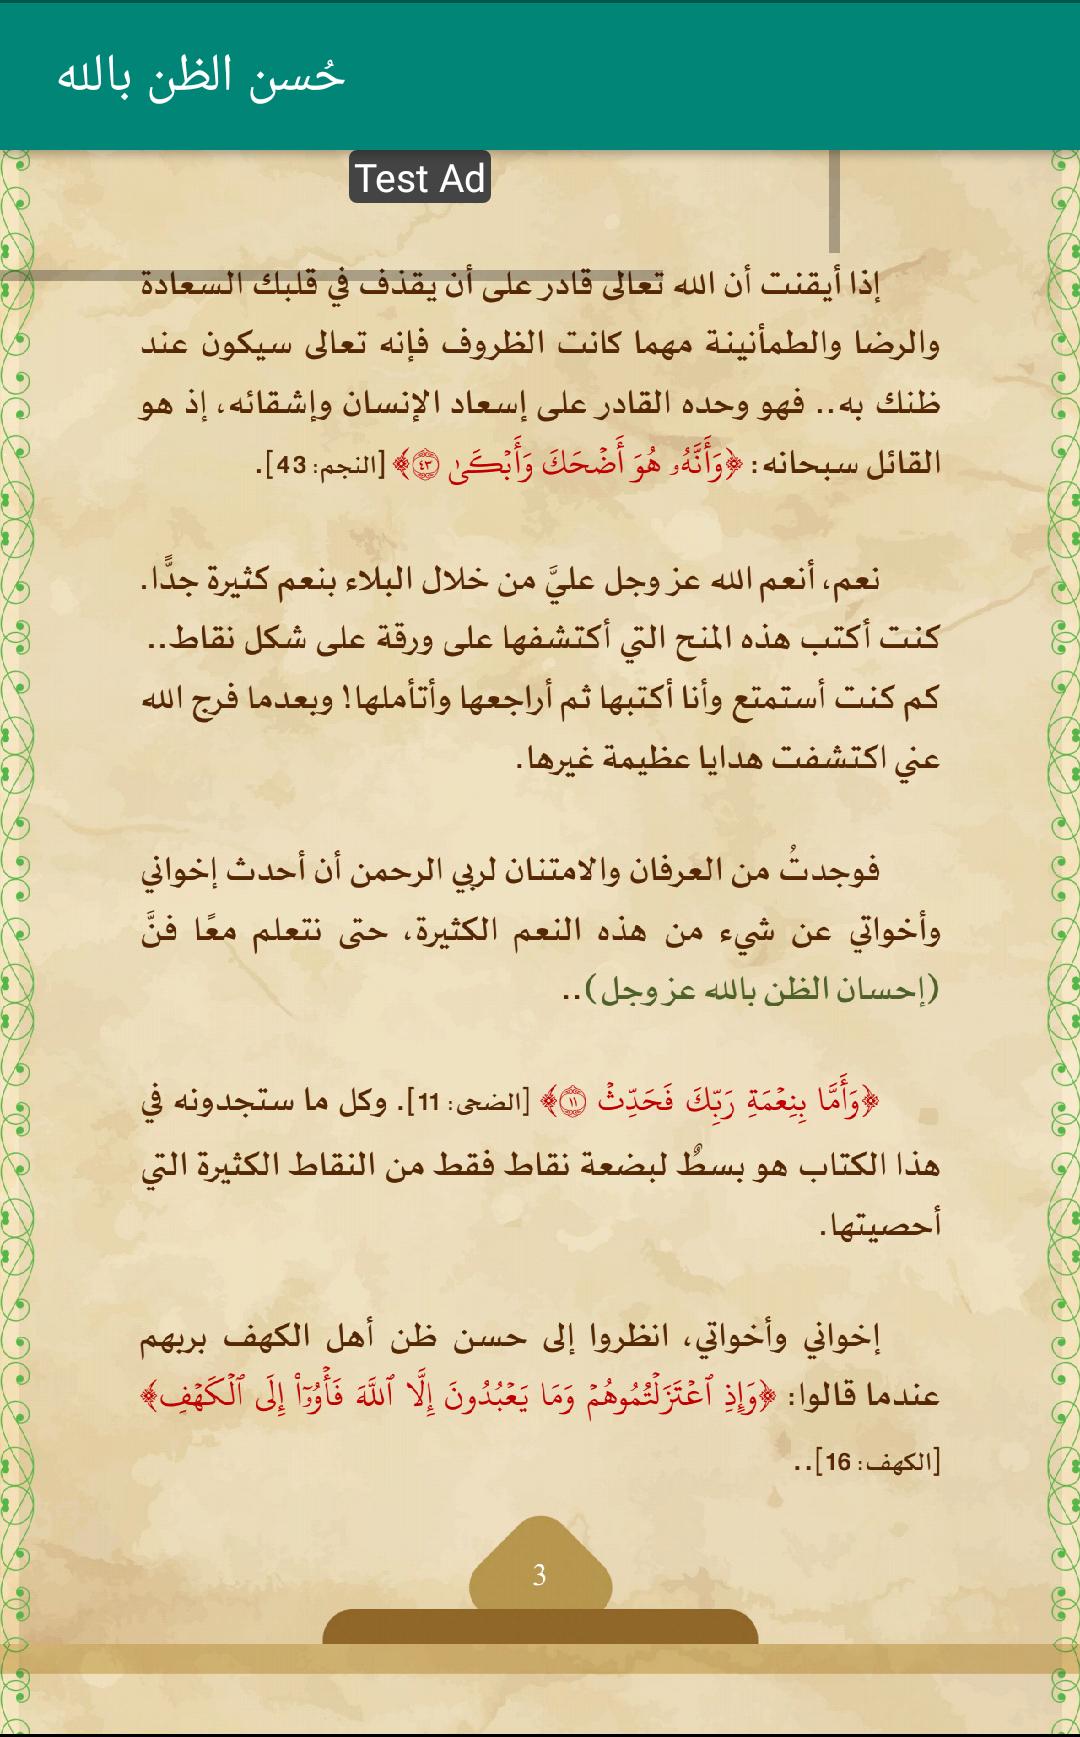 حُسن الظن بالله
Test Ad
إذا أيقنت أن الله تعالى قادر على أن يقذف في قلبك السعادة
والرضا والطمأنينة مهما كانت الظروف فإنه تعالى سيكون عند
ظنك به.. فهو وحده القادر على إسعاد الإنسان وإشقائه، إذ هو
القائل سبحانه: ﴿وَأَنَّهُۥ هُوَ أَضۡحَكَ وَأَبۡكَىٰ ٤٣﴾ [النجم: 43].
نعم، أنعم الله عز وجل عليَّ من خلال البلاء بنعم كثيرة جدًّا.
كنت أكتب هذه المنح التي أكتشفها على ورقة على شكل نقاط..
كم كنت أستمتع وأنا أكتبها ثم أراجعها وأتأملها! وبعدما فرج الله
عني اكتشفت هدايا عظيمة غيرها.
فوجدتُ من العرفان والامتنان لربي الرحمن أن أحدث إخواني
وأخواتي عن شيء من هذه النعم الكثيرة، حتى نتعلم معًا فنَّ
(إحسان الظن بالله عز وجل)..
﴿وَأَمَّا بِنِعۡمَةِ رَبِّكَ فَحَدِّثۡ ١١﴾ [الضحى: 11]. وكل ما ستجدونه في
هذا الكتاب هو بسطٌ لبضعة نقاط فقط من النقاط الكثيرة التي
أحصيتها.
إخواني وأخواتي، انظروا إلى حسن ظن أهل الكهف بربهم
عندما قالوا: ﴿وَإِذِ ٱعۡتَزَلۡتُمُوهُمۡ وَمَا يَعۡبُدُونَ إِلَّا ٱللَّهَ فَأۡوُۥٓاْ إِلَى ٱلۡكَهۡفِ﴾
[الكهف: 16]..
3